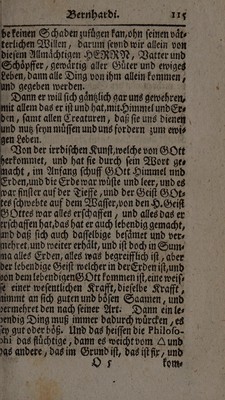 Bernhardi. 115
be keinen Schaden zufügen kan, ohn seinen vät-
terlichen Willen, darum seynd wir allein von
diesem Allmächtigen HERRN, Vatter und
Schöpffer, gewärtig aller Güter und ewiges
Leben, dann alle Ding von ihm allein kommen,
und gegeben werden.
Dann er will sich gäntzlich gar uns gewehren,
mit allem das er ist und hat, mit Himmel und Er-
den, samt allen Creaturen, daß sie uns dienen
und nutz seyn müssen und uns fordern zum ewi-
gen Leben.
Von der irrdischen Kunst, welche von GOtt
herkommet, und hat sie durch sein Wort ge-
macht, im Anfang schuff GOtt Himmel und
Erden, und die Erde war wüste und leer, und es
war finster auf der Tieffe, und der Geist GOt-
tes schwebte auf dem Wasser, von den H. Geist
GOttes war alles erschaffen, und alles das er
erschaffen hat, das hat er auch lebendig gemacht,
und daß sich auch dasselbige besämet und ver-
mehret, und weiter erhält, und ist doch in Sum-
ma alles Erden, alles was begreifflich ist, aber
der lebendige Geist welcher in der Erden ist, und
von dem lebendigen GOtt kommen ist, eine weis-
se einer wesentlichen Krafft, dieselbe Krafft,
nimmt an sich guten und bösen Saamen, und
vermehret den nach seiner Art. Dann ein le-
bendig Ding muß immer dadurch würcken, es
sey gut oder böß. Und das heissen die Philoso-
phi das flüchtige, dann es weicht vom △ und
das andere, das im Grund ist, das ist fir, und
O 5 kom-